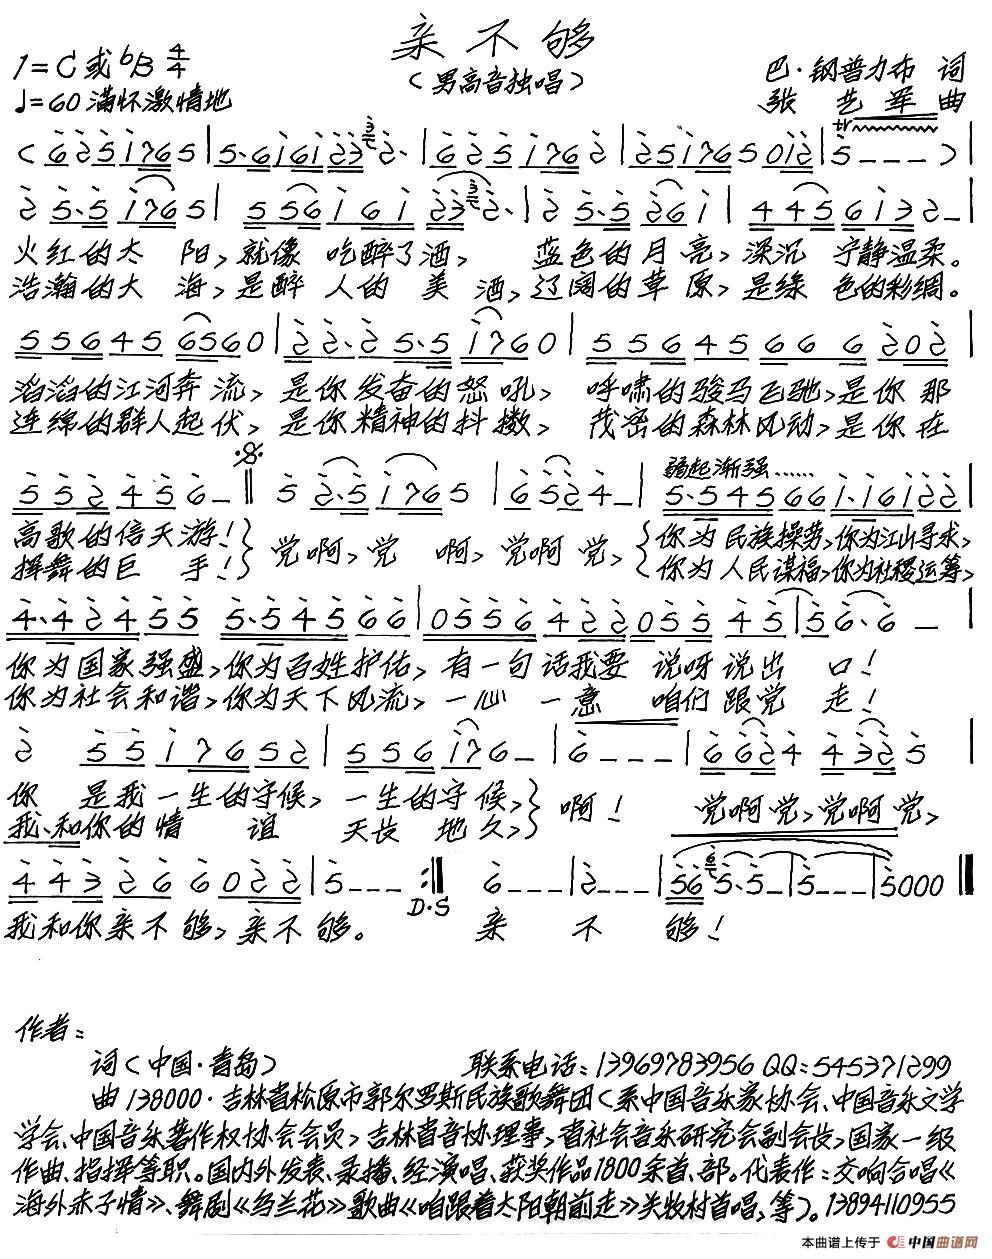 亲不够
1=C或bB 4/4
（男高音独唱）
巴·钢普力布 词
♩=60 满怀激情地
张艺军 曲
火红的太 阳，就像 吃醉了酒， 蓝色的月 亮，深沉 宁静温柔。
浩瀚的大 海，是醉 人的 美 酒，辽阔的草 原，是绿 色的彩绸。
滔滔的江河奔 流，是你发奋的怒吼， 呼啸的骏马飞驰，是你 那
连绵的群人起 伏，是你精神的抖擞， 茂密的森林风动，是你 在
弱起渐强……
高歌的信天游！ 党啊，党 啊，党啊 党， 你为 民族操劳，你为江山寻求，
挥舞的巨 手！ 你为 人民谋福，你为社稷运筹，
你为国家强盛，你为百姓护佑，有一句话我要 说呀说出 口！
你为社会和谐，你为天下风流，一心 一意 咱们跟党 走！
你 是我一生的守候，一生的守 候， 啊！ 党啊党，党啊党，
我和你的情 谊 天长 地久，
D·S
我和你亲不够，亲不够。 亲 不 够！
作者：
词（中国·青岛） 联系电话：13969783956 QQ：545371299
曲 138000·吉林省松原市郭尔罗斯民族歌舞团（系中国音乐家协会、中国音乐文学
学会、中国音乐著作权协会会员，吉林省音协理事，省社会音乐研究会副会长，国家一级
作曲、指挥等职。国内外发表、录播、经演唱、获奖作品1800余首、部。代表作：交响合唱《
海外赤子情》、舞剧《乌兰花》歌曲《咱跟着太阳朝前走》关牧村首唱，等）。13894110955
本曲谱上传于 中国曲谱网